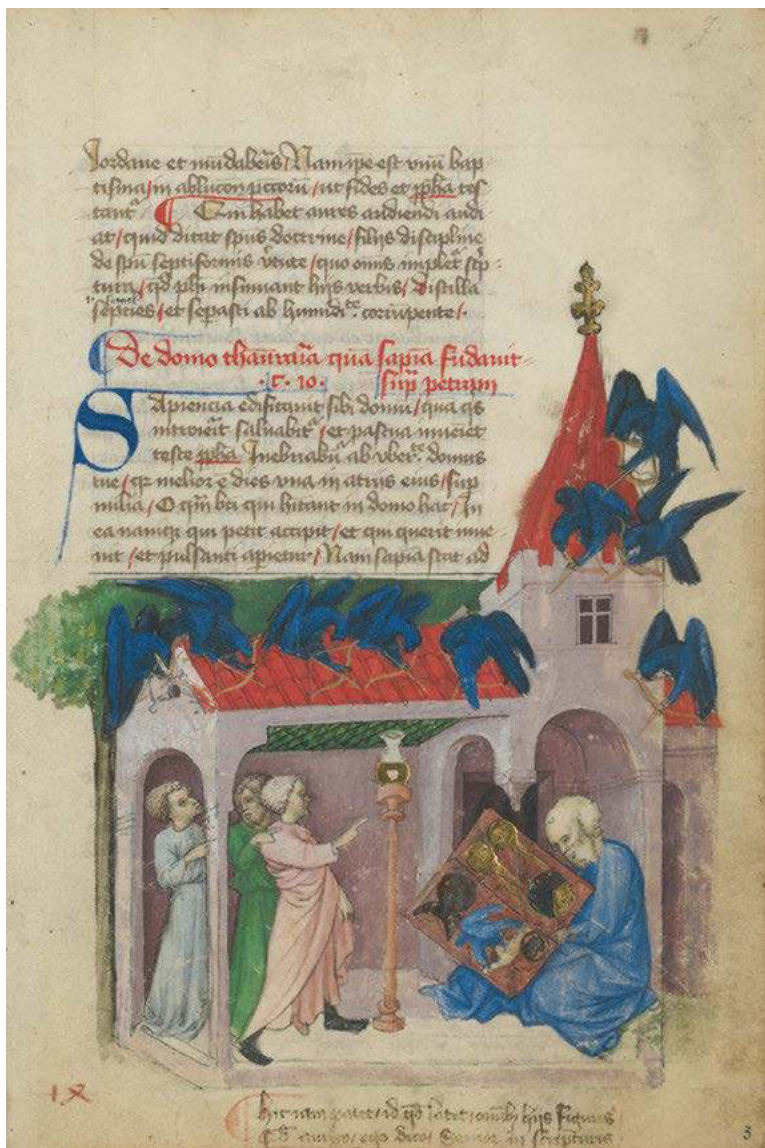 Jordane et mūdabēis / Nam ip̄e est vnū bap
tisma / in abluco͞n pcco͞rū / ut fides et ꝓph̄a tes
tant᷑ ¶ Qui habet aures audiendi audi
at / quid dicat sp̄us doctrine / filijs discipline
de sp̄u septiformis v̄tute / quo om̄is implet᷑ sc͞p
tura / qd̄ ph̄i insinuant hijs verbis / Distilla
septies / et sepasti ab humidi.te corrupente /.
De domo thau͞raria qua sapīa fūdauit
.c. 10. sup̄ petram
SApiencia edificauit sibi domū / qua q̄s
introierit saluabit᷑ / et pascua inueiet
teste ꝓph̄a Inebriabūt᷑ ab vber.te domus
tue / qr melior ē dies vna in atrijs eius / sup
milia / O qm̄ bt̄i qui hītant in domo hac / In
ea namq̨ qui petit accipit / et qui querit inue
nit / et pulsanti aperietur / Nam sapīa stat ad
IX
hic iam patet id qd̄ latet hijs figuris
ego dico in scripturis
3